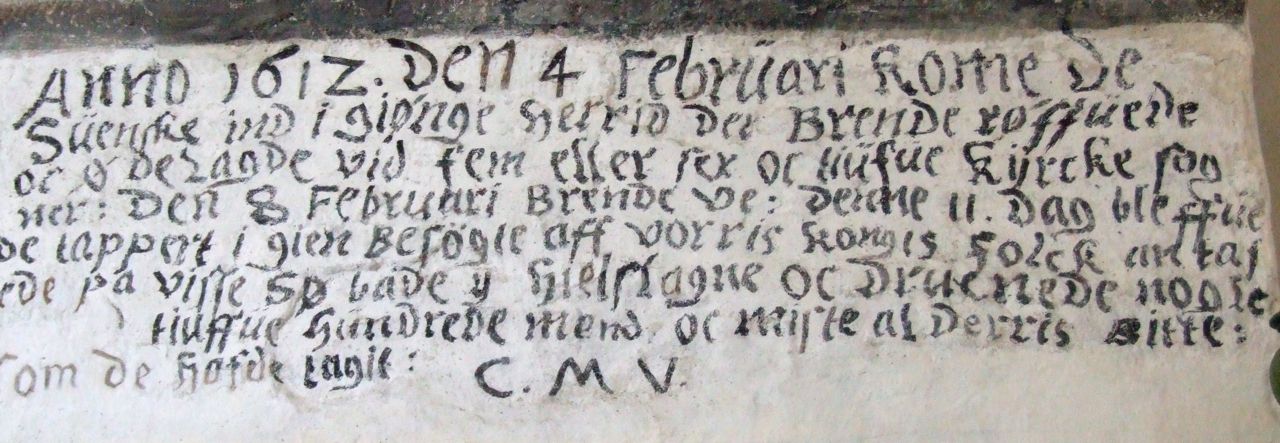 Anno 1612. Den 4 Februari kome de
Suenske ind i giönge herrid der Brende röffuede
oc ödelagde vid fem eller sex oc tiufue Kyrcke sog
ner: Den 8 Februari Brende Ve: denne 11. Dag bleffue
de tappert i gien Besögte aff vorris kongis Folck antaf
ede på visse Sø bade y hielslagne oc Druenede nogle
tiuffue hundrede mend oc miste al Derris Bitte:
som de hafde tagit: C. M V.